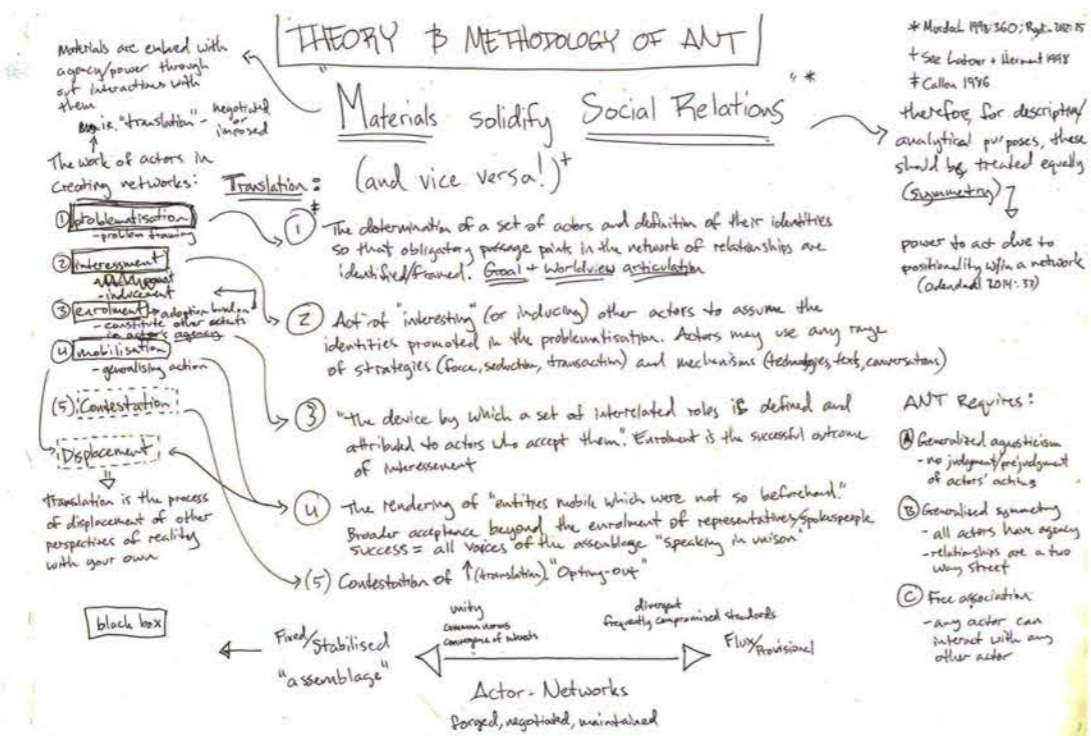 THEORY & METHODOLOGY OF ANT
"Materials solidify Social Relations" *
(and vice versa!)‡
* Murdoch 1998:360;
† See Latour + Hermant 1998
‡ Callon 1986
Materials are embued with
agency/power through
out interactions with
them
i.e. "translation" - negotiated
or
imposed
The work of actors in
creating networks:
① problematisation
- problem framing
② interessment
- inducement
③ enrolment → adoption
- constitute other actants
in actor's agency
④ mobilisation
- generalising action
(5) Contestation
Displacement
Translation is the process
of displacement of other
perspectives of reality
with your own
Translation: ‡
① The determination of a set of actors and definition of their identities
so that obligatory passage points in the network of relationships are
identified/framed. Goal + Worldview articulation
② Act of "interesting" (or inducing) other actors to assume the
identities promoted in the problematisation. Actors may use any range
of strategies (force, seduction, transaction) and mechanisms (technologies, texts, conversations)
③ "The device by which a set of interrelated roles is defined and
attributed to actors who accept them". Enrolment is the successful outcome
of interessement
④ The rendering of "entities mobile which were not so beforehand."
Broader acceptance beyond the enrolment of representatives/spokespeople
success = all voices of the assemblage "speaking in unison"
(5) Contestation of ↑ (translation). "Opting-out"
therefore, for descriptive/
analytical purposes, these
should be treated equally
(symmetry)
power to act due to
positionality w/in a network
(Odendaal 2014:33)
ANT Requires:
Ⓐ Generalized agnosticism
- no judgment/prejudgment
of actors' acting
Ⓑ Generalized symmetry
- all actors have agency
- relationships are a two
way street
Ⓒ Free association
- any actor can
interact with any
other actor
black box
Fixed/Stabilised
"assemblage"
unity
convergence of interests
divergent
frequently compromised standards
Flux/Provisional
Actor-Networks
forged, negotiated, maintained